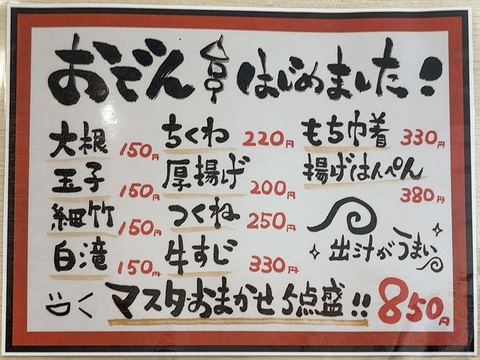 おでん はじめました!
大根 150円
玉子 150円
細竹 150円
白滝 150円
ちくわ 220円
厚揚げ 200円
つくね 250円
牛すじ 330円
もち巾着 330円
揚げはんぺん 380円
出汁がうまい
マスタおまかせ5点盛!! 850円